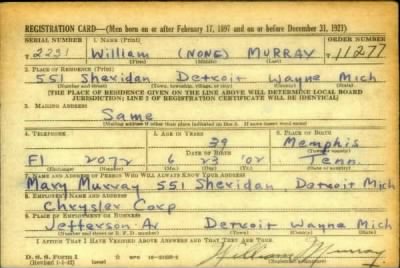 REGISTRATION CARD—(Men born on or after February 17, 1897 and on or before December 31, 1921)
SERIAL NUMBER 1. NAME (Print) ORDER NUMBER
T 2231 William (NONE) MURRAY 11277
(First) (Middle) (Last)
2. PLACE OF RESIDENCE (Print)
551 Sheridan Detroit Wayne Mich
(Number and street) (Town, township, village, or city) (County) (State)
[THE PLACE OF RESIDENCE GIVEN ON THE LINE ABOVE WILL DETERMINE LOCAL BOARD
JURISDICTION; LINE 2 OF REGISTRATION CERTIFICATE WILL BE IDENTICAL]
3. MAILING ADDRESS
Same
[Mailing address if other than place indicated on line 2. If same insert word same]
4. TELEPHONE 5. AGE IN YEARS 6. PLACE OF BIRTH
39 Memphis
DATE OF BIRTH
FI 2072 6 23 '02 Tenn.
7. NAME AND ADDRESS OF PERSON WHO WILL ALWAYS KNOW YOUR ADDRESS
Mary Murray 551 Sheridan Detroit Mich
8. EMPLOYER'S NAME AND ADDRESS
Chrysler Corp
9. PLACE OF EMPLOYMENT OR BUSINESS
Jefferson Av Detroit Wayne Mich
(Number and street or R. F. D. number) (Town) (County) (State)
I AFFIRM THAT I HAVE VERIFIED ABOVE ANSWERS AND THAT THEY ARE TRUE.
D. S. S. Form 1
William Murray